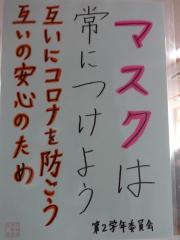 マスクは
常につけよう
互いにコロナを防ごう
互いの安心のため
第2学年委員会